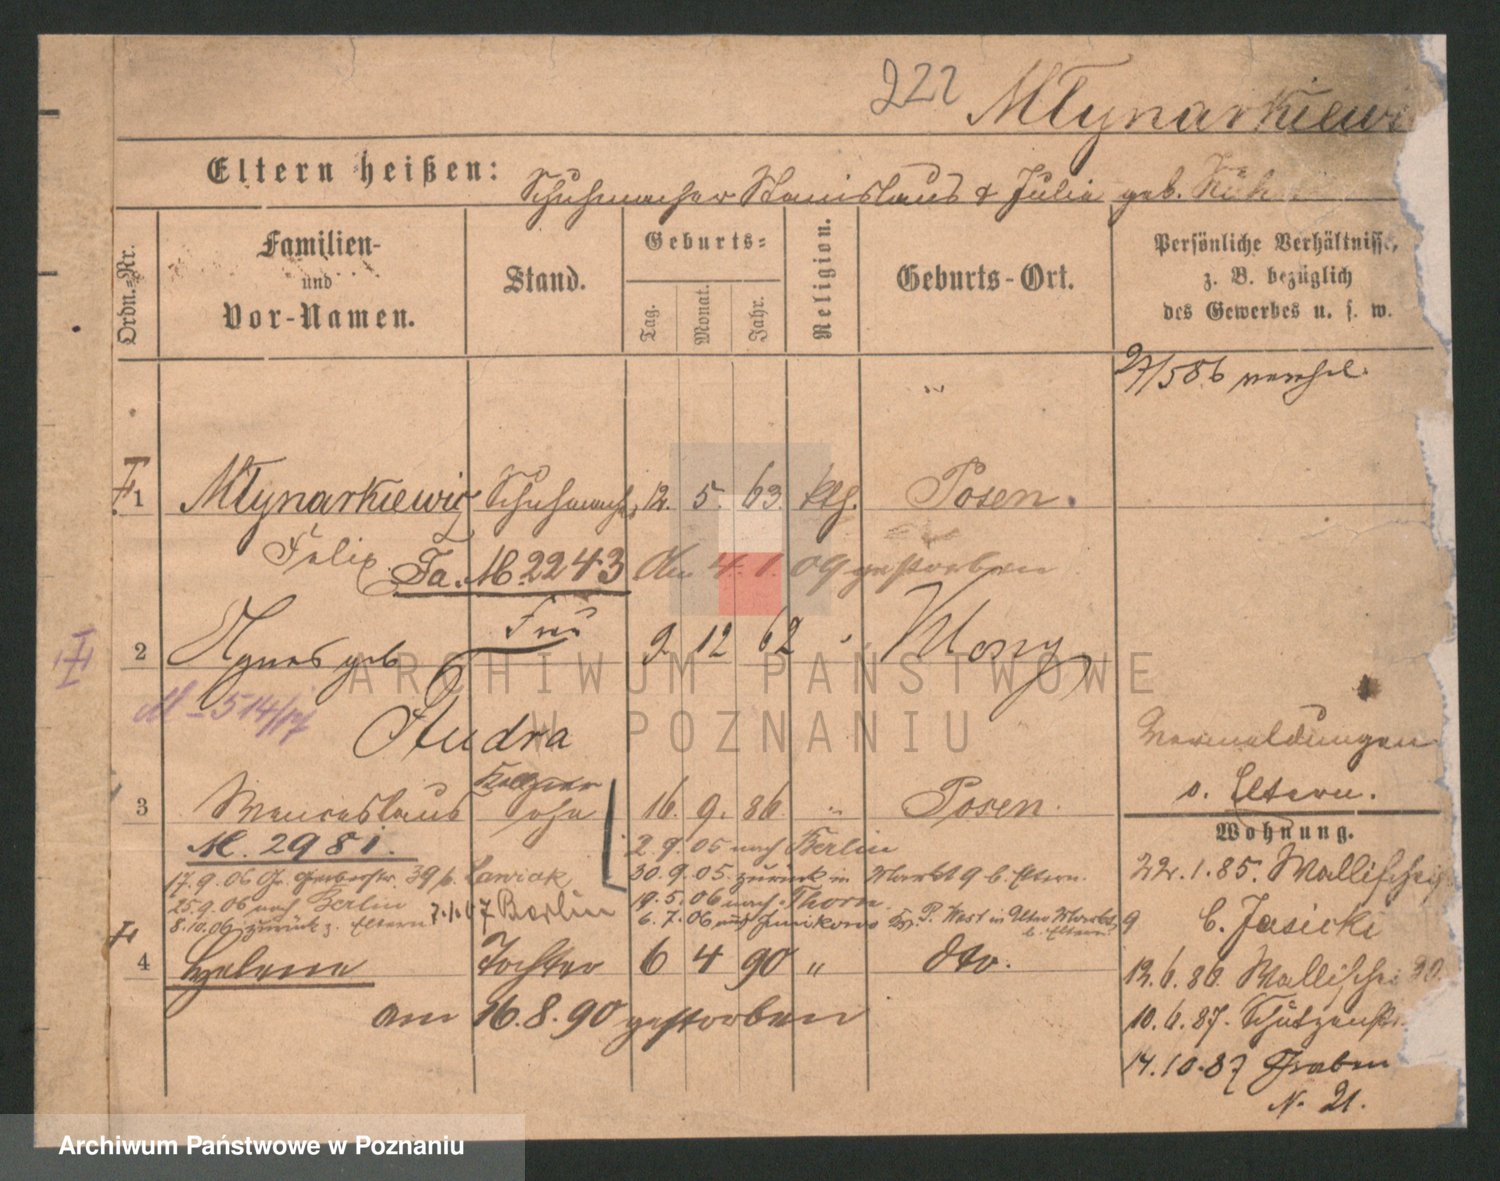 222 Młynarkiewi
Eltern heißen: Schuhmacher Stanislaus & Julie geb.
Ordn.-Nr.
Familien-
und
Vor-Namen.
Stand.
Geburts-
Tag.
Monat.
Jahr.
Religion.
Geburts-Ort.
Persönliche Verhältnisse,
z. B. bezüglich
des Gewerbes u. s. w.
27/586
1 Młynarkiewicz Schuhmacher 12. 5. 63. kth. Posen.
Felix. Fa. M. 2243 Am 4. 1. 09 gestorben
Frau
2 Agnes geb 9. 12 62 "
M 514/17
Andra
Vermeldungen
s. Eltern.
3 Wenceslaus Sohn 16. 9. 86 " Posen.
M. 2981.
2.9.05 nach Berlin
17.9.06 39 b. Lawiak 30.9.05 zurück in Markt 9 b. Eltern.
25.9.06 nach Berlin 19.5.06 nach Thorn
8.10.06 zurück z. Eltern 7.1.07 Berlin 6.7.06 b. Eltern
4 Helene Tochter 6 4 90 " dto.
am 16.8.90 gestorben
Wohnung.
22.1.85. Wallischei
9 b. Jasicki
12.6.86. Wallischei 20.
10.6.87. Schützenstr.
14.10.87 Graben
N. 21.
ARCHIWUM PAŃSTWOWE
W POZNANIU
Archiwum Państwowe w Poznaniu